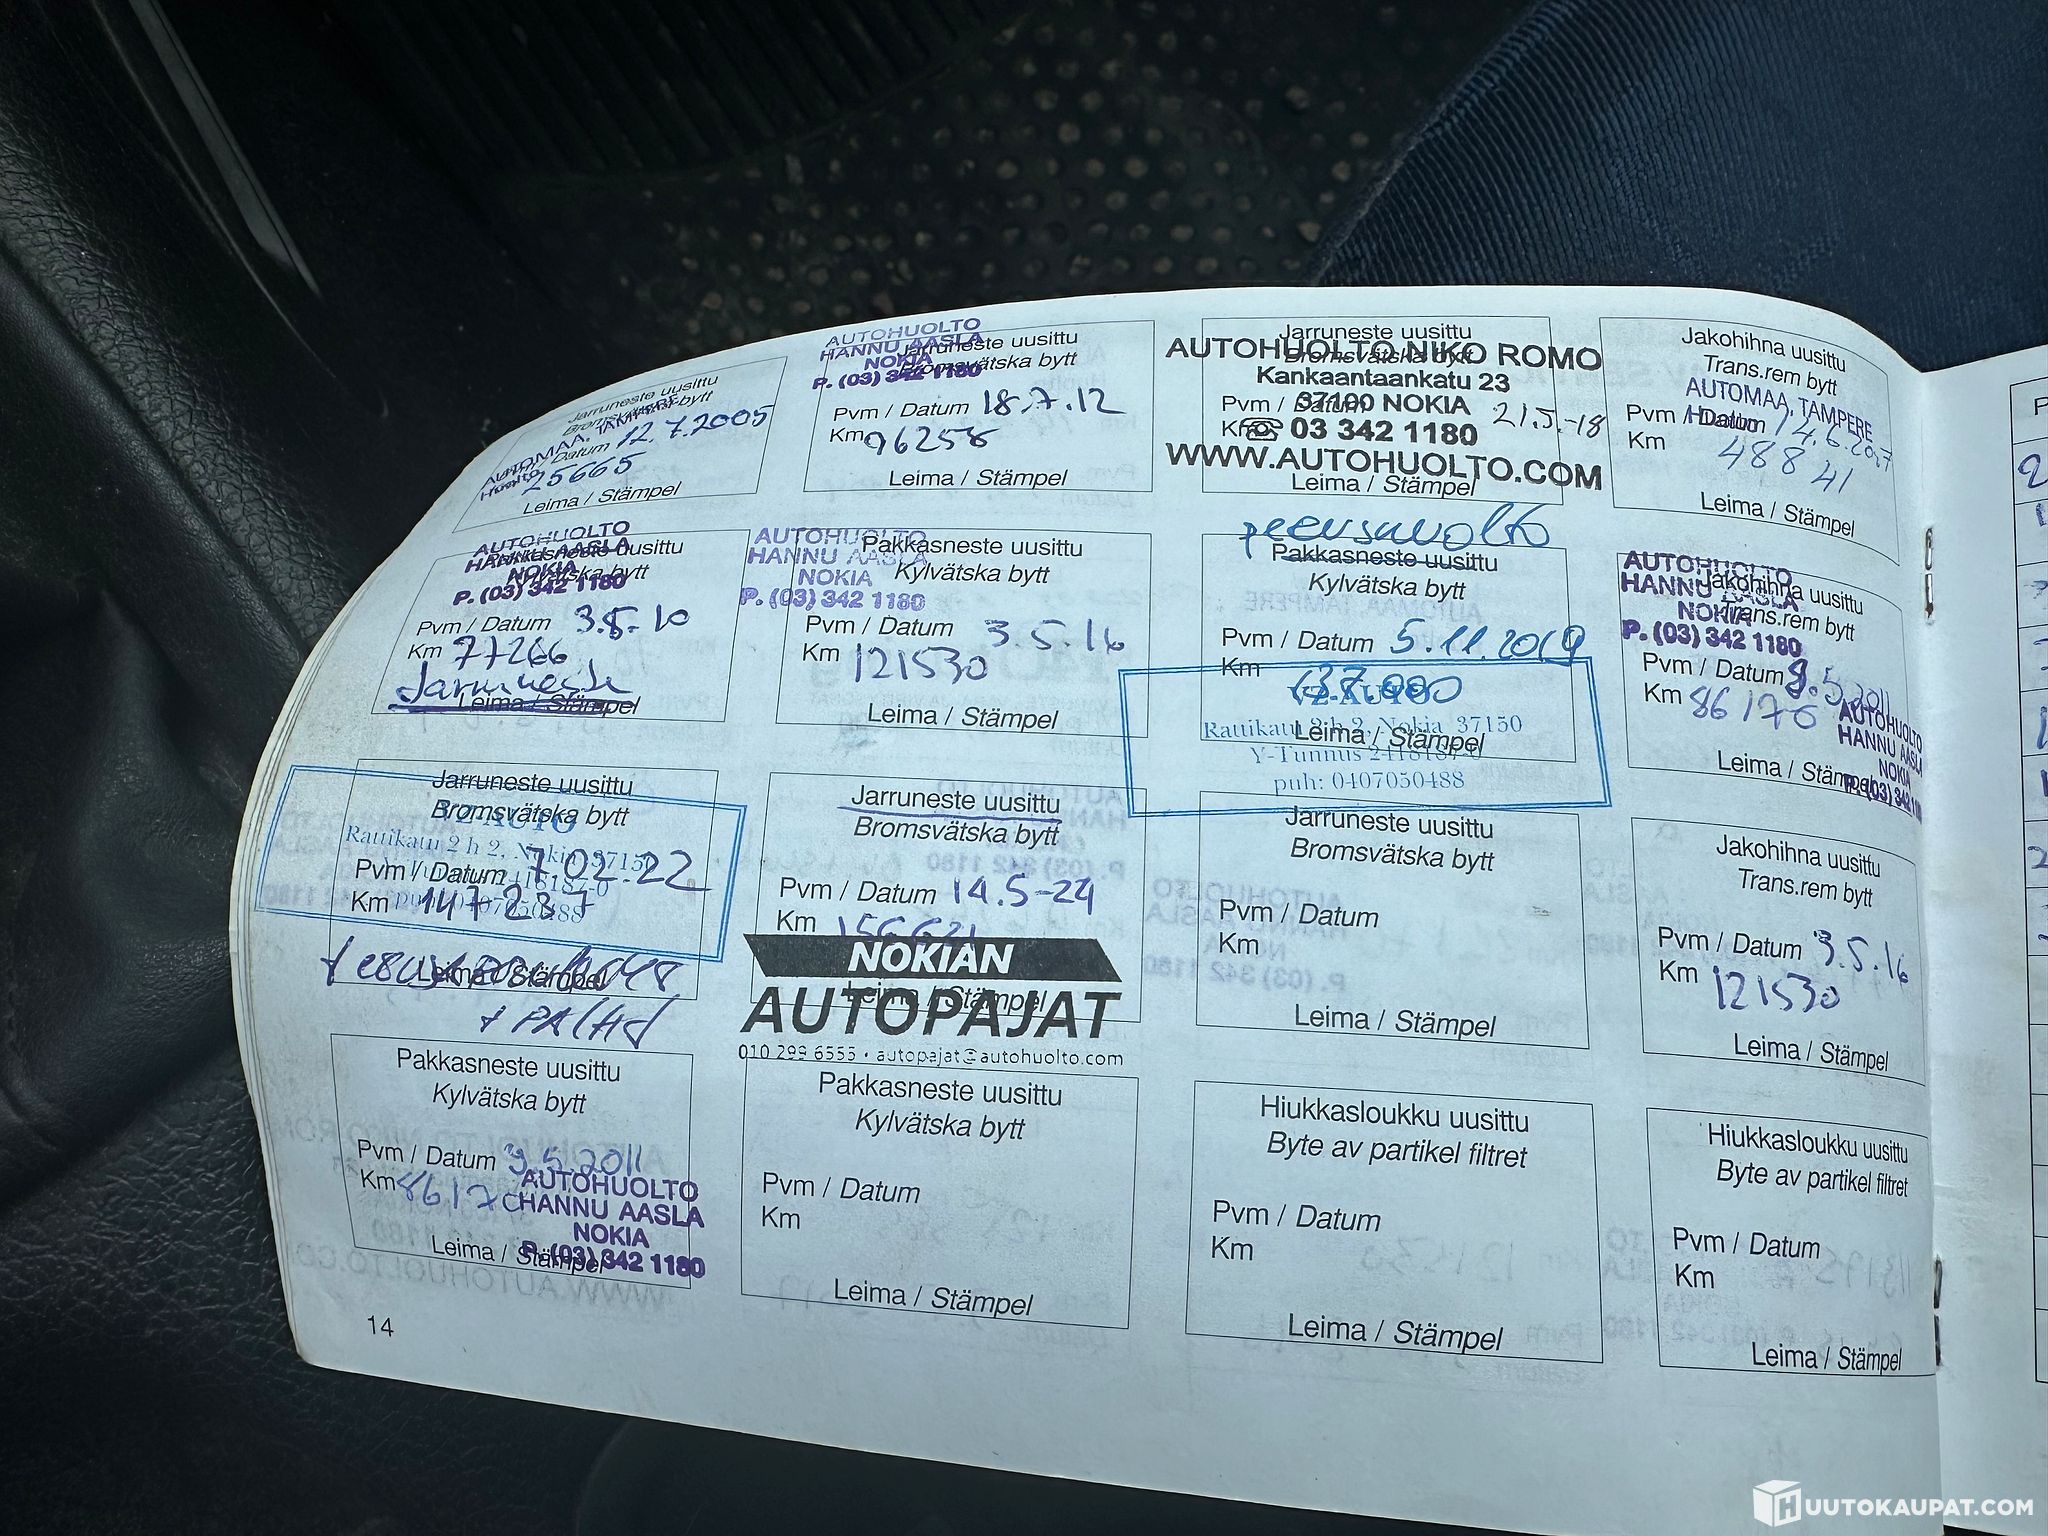 Jarruneste uusittu
Bromsvätska bytt
AUTOMAA, TAMPERE
Huolto
Datum 12.7.2005
25665
Leima / Stämpel
AUTOHUOLTO
HANNU AASLA
NOKIA
P. (03) 342 1180
Jarruneste uusittu
Bromsvätska bytt
Pvm / Datum 18.7.12
Km 96258
Leima / Stämpel
Jarruneste uusittu
Bromsvätska bytt
AUTOHUOLTO NIKO ROMO
Kankaantaankatu 23
37100 NOKIA
Pvm / Datum 21.5.-18
Km ☎ 03 342 1180
WWW.AUTOHUOLTO.COM
Leima / Stämpel
Jakohihna uusittu
Trans.rem bytt
AUTOMAA, TAMPERE
Huolto
Pvm / Datum 14.6.2007
Km 48841
Leima / Stämpel
AUTOHUOLTO
HANNU AASLA
NOKIA
P. (03) 342 1180
Pakkasneste uusittu
Kylvätska bytt
Pvm / Datum 3.5.10
Km 77266
Jarruneste
Leima / Stämpel
AUTOHUOLTO
HANNU AASLA
NOKIA
P. (03) 342 1180
Pakkasneste uusittu
Kylvätska bytt
Pvm / Datum 3.5.16
Km 121530
Leima / Stämpel
perushuolto
Pakkasneste uusittu
Kylvätska bytt
Pvm / Datum 5.11.2019
Km 137.000
Rattikatu 2 h 2, Nokia 37150
Leima / Stämpel
Y-Tunnus 2418187-0
puh: 0407050488
AUTOHUOLTO
HANNU AASLA
NOKIA
P. (03) 342 1180
Jakohihna uusittu
Trans.rem bytt
Pvm / Datum 9.5.2011
Km 86170
AUTOHUOLTO
HANNU AASLA
NOKIA
P. (03) 342 1180
Leima / Stämpel
Jarruneste uusittu
Bromsvätska bytt
Rattikatu 2 h 2, Nokia 37150
Pvm / Datum 7.02.22
Km 147237
Leima / Stämpel
Jarruneste uusittu
Bromsvätska bytt
Pvm / Datum 14.5-24
Km 156621
NOKIAN
AUTOPAJAT
Leima / Stämpel
010 299 6555 • autopajat@autohuolto.com
Jarruneste uusittu
Bromsvätska bytt
Pvm / Datum
Km
Leima / Stämpel
Jakohihna uusittu
Trans.rem bytt
Pvm / Datum 3.5.16
Km 121530
Leima / Stämpel
Pakkasneste uusittu
Kylvätska bytt
Pvm / Datum 9.5.2011
Km 86170
AUTOHUOLTO
HANNU AASLA
NOKIA
P. (03) 342 1180
Leima / Stämpel
Pakkasneste uusittu
Kylvätska bytt
Pvm / Datum
Km
Leima / Stämpel
Hiukkasloukku uusittu
Byte av partikel filtret
Pvm / Datum
Km
Leima / Stämpel
Hiukkasloukku uusittu
Byte av partikel filtret
Pvm / Datum
Km
Leima / Stämpel
14
HUUTOKAUPAT.COM